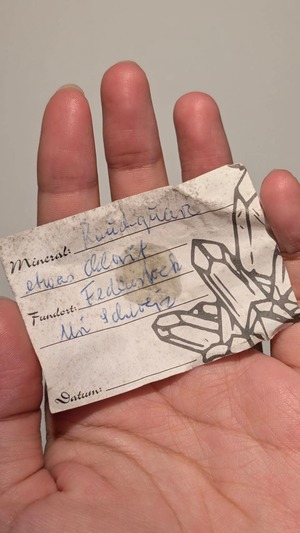 Mineral: Rauchquarz
etwas Chlorit
Fundort: Fedenstock
Uri Schweiz
Datum: